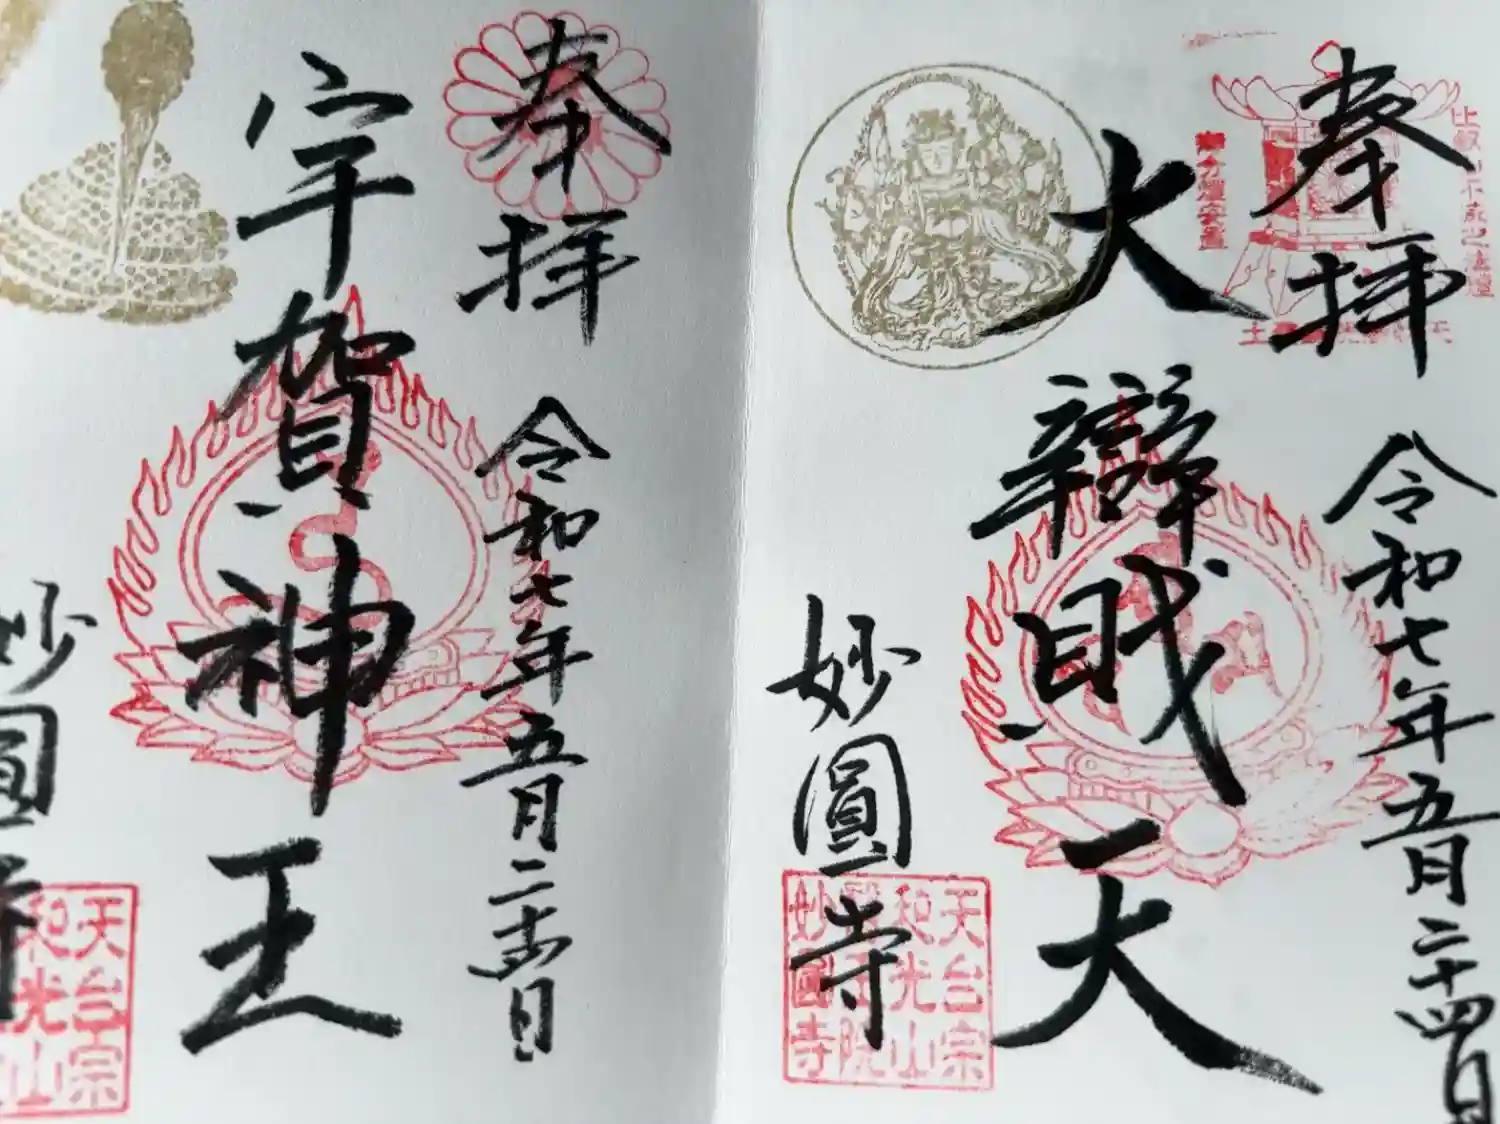 奉拝
比叡山不滅之法燈
令和七年五月二十四日
大辯財天
妙圓寺
天台宗
和光山
醫王院
妙圓寺
奉拝
令和七年五月二十四日
宇賀神王
妙圓寺
天台宗
和光山